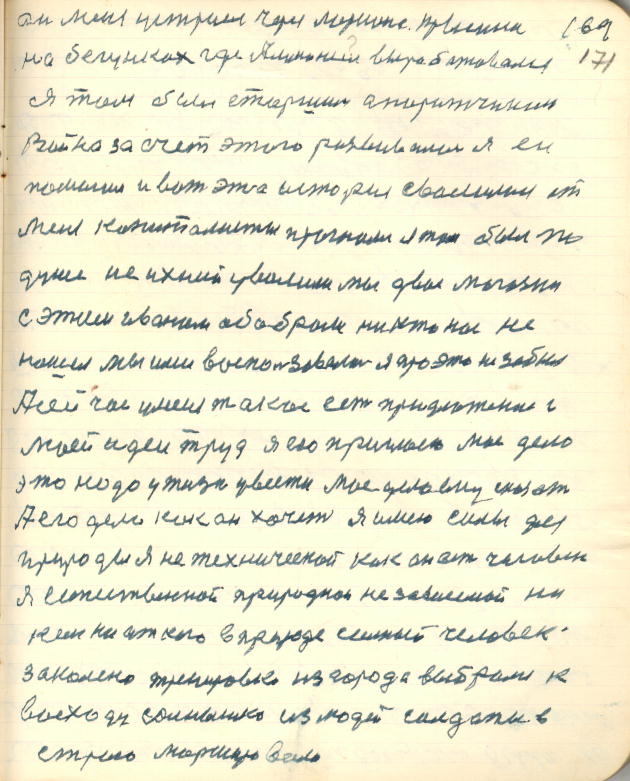 он меня устроил через 169
на бегунках где вырабатовался 171
я там был старшим аппаратчиком
Война за счет этого развивалася я ей
помогал и вот эта история свалилася от
меня капиталисты прогнали я там был по
душе не ихний уволили мы двое магазин
с этим иваном обобрали никто нас не
нашел мы ими воспользовалися я про это не забыл
А сейчас у меня такое есть придложение с
моей идеи труд я его приглашаю мое дело
это надо у тизи увести мое дело ему сказать
А его дело как он хочет я имею силы
природы я не технический как он ет человек
я естественной природной независемой ни
кем ни от кого в природе сильный человек
заколено тренировка из города выбрали к
восходу солнышко из людей солдаты в
строю маршировало